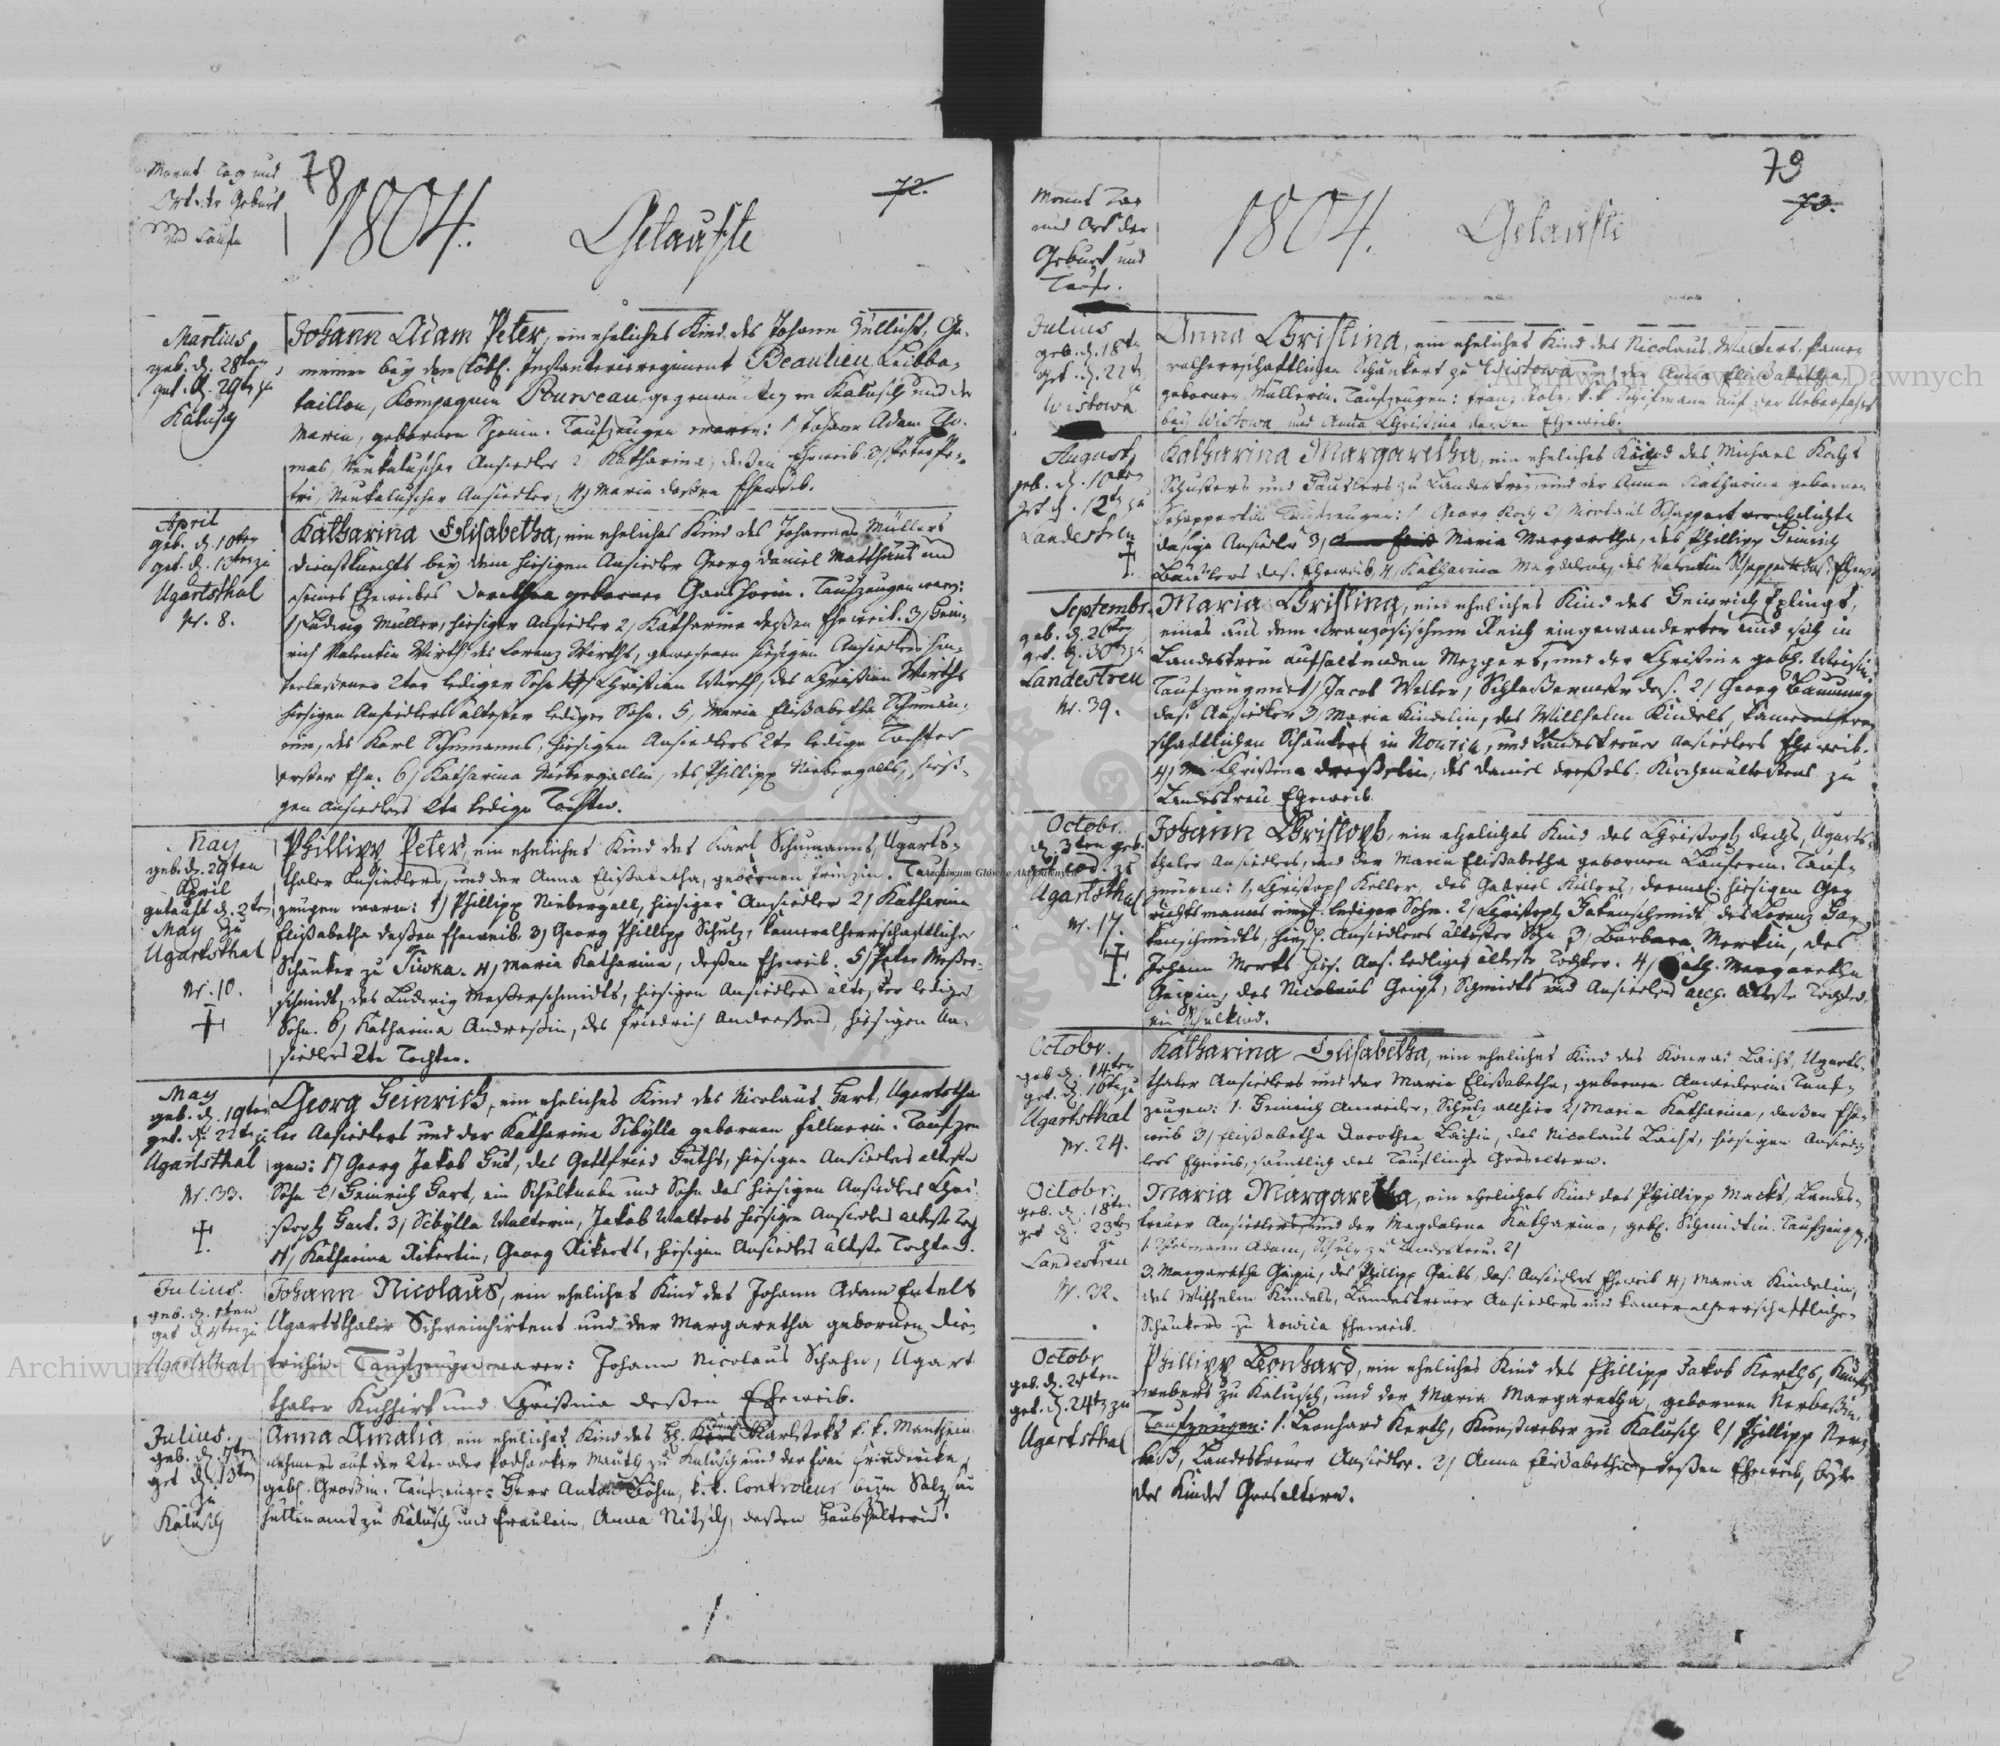 Monat Tag und
Ort der Geburt
und Taufe
78
72.
1804. Getaufte
Martius
geb. d. 28ten
get. d. 29ten zu
Kalusch
Johann Adam Peter, ein eheliches Kind des Johann Ge-
meinen bey dem löbl. Infanterieregiment Beaulieu Leibba-
taillon, Kompagnie gegenwärtig in Kalusch und der
Maria, gebornen Taufzeugen waren: 1/ Johann Adam Tho-
mas, Neukaluscher Ansiedler 2/ Katharina, deßen Eheweib. 3/ Peter Pe-
tri, Neukaluscher Ansiedler, 4/ Maria deßen Eheweib.
April
geb. d. 10ten
get. d. zu
Ugartsthal
Nr. 8.
Katharina Elisabetha, ein eheliches Kind des Johannes Müllers
Dienstknechts bey dem hiesigen Ansiedler Georg Daniel Matthäus und
seines Eheweibes Dorothea geborner Taufzeugen waren:
1/ Ludwig Müller, hiesiger Ansiedler 2/ Katharina deßen Eheweib. 3/ Hein-
rich Valentin Wirth, des Lorenz Wirths, gewesenen hiesigen Ansiedlers hin-
terlaßener 2ter lediger Sohn 4/ Christian Wirth, des Christian Wirths
hiesigen Ansiedlers ältester lediger Sohn. 5/ Maria Elisabetha Schuman-
nin, des Karl Schumanns, hiesigen Ansiedlers 2te ledige Tochter
erster Ehe. 6/ Katharina Niebergallin, des Phillipp Niebergalls, hiesi-
gen Ansiedlers 2te ledige Tochter.
May
geb. d. 29ten
April
getauft d. 2ten
May zu
Ugartsthal
Nr. 10.
Phillipp Peter, ein eheliches Kind des Karl Schumanns, Ugarts-
thaler Ansiedlers, und der Anna Elisabetha, gebornen Prinzin. Tauf-
zeugen waren: 1/ Phillipp Niebergall, hiesiger Ansiedler 2/ Katharina
Elisabetha deßen Eheweib. 3/ Georg Phillipp Schulz, kameralherrschaftlicher
Schänker zu Siwka. 4/ Maria Katharina, deßen Eheweib. 5/ Peter Meßer-
schmidt, des Ludwig Meßerschmidts, hiesigen Ansiedlers ältester lediger
Sohn. 6/ Katharina Andreßin, des Friedrich Andreßens, hiesigen An-
siedlers 2te Tochter.
May
geb. d. 19ten
get. d. 22ten zu
Ugartsthal
Nr. 33.
Georg Heinrich, ein eheliches Kind des Nicolaus Hart, Ugartstha-
ler Ansiedlers und der Katharina Sibylla gebornen Fellnerin. Taufzeu-
gen: 1/ Georg Jakob Gut, des Gottfried Guths, hiesigen Ansiedlers ältester
Sohn 2/ Heinrich Hart, ein Schulknabe und Sohn des hiesigen Ansiedlers Chri-
stoph Hart. 3/ Sibylla Walterin, Jakob Walters hiesigen Ansiedlers älteste Tochter
4/ Katharina Rikertin, Georg Rikerts, hiesigen Ansiedlers älteste Tochter.
Julius.
geb. d. 1ten
get. d. 4ten zu
Ugartsthal
Johann Nicolaus, ein eheliches Kind des Johann Adam Ertels
Ugartsthaler Schweinhirtens und der Margaretha gebornen Die-
trichin. Taufzeugen waren: Johann Nicolaus Schahn, Ugarts-
thaler Kuhhirt und Christina deßen Eheweib.
Julius.
geb. d.
get. d. 13ten
zu
Kalusch
Anna Amalia, ein eheliches Kind des H. Karlstoks k. k. Mauthein-
nehmers auf der 2ten oder Mauth zu Kalusch und der Frau Friederika
gebl. Großin. Taufzeuge: Herr Anton Böhm, k. k. Controleur beym Salz-
hüttenamt zu Kalusch und Fraulein, Anna Nitsch, deßen Haushälterin.
79
73.
Monat Tag
und Ort der
Geburt und
Taufe.
1804. Getaufte
Julius
geb. d. 18ten
get. d. 22ten
zu
Wistowa
Anna Christina, ein eheliches Kind des Nicolaus Walters, kame-
ralherrschaftlichen Schänkers zu Wistowa und der Anna Elisabetha,
gebornen Müllerin. Taufzeugen: Franz k. k. Schifmann auf der Ueberfahrt
bey Wistowa und Anna Christina deßen Eheweib.
August,
geb. d. 10ten
get. d. 12ten zu
Landestreu
Katharina Margaretha, ein eheliches Kind des Michael Kochs
Schusters und Häuslers zu Landestreu, und der Anna Katharina gebornen
Schappertin. Taufzeugen: 1/ Georg Koch 2/ Nicolaus Schappert verehelichte
dasige Ansiedler 3/ Maria Margaretha, des Phillipp Heinrich
das. Eheweib, 4/ Katharina Magdalena, des Valentin Schapperts das. Eheweib
Septembr.
geb. d. 26ten
get. d. 30ten zu
Landestreu
Nr. 39.
Maria Christina, ein eheliches Kind des Heinrich Eplings,
eines aus dem französischem Reich eingewanderten und sich in
Landestreu aufhaltenden Mezgers, und der Christina gebl.
Taufzeugen: 1/ Jacob Weller, Schloßermstr das. 2/ Georg
das. Ansiedler 3/ Maria Kindelin, des Willhelm Kindels, kameralherr-
schaftlichen Schänkers in Nowiza, und Landestreuer Ansiedlers Eheweib.
4/ Christina Dreßelin, des Daniel Dreßels, Kirchenältestens zu
Landestreu Eheweib
Octobr.
d. 3ten geb.
get. eod. zu
Ugartsthal
Nr. 17.
Johann Christoph, ein eheliches Kind des Christoph Ugarts-
thaler Ansiedlers, und der Maria Elisabetha gebornen Tauf-
zeugen: 1/ Christoph Keller, des Gabriel Kellers, dermal. hiesigen Ge-
richtsmanns lediger Sohn. 2/ Christoph Hakenschmidt des Lorenz Ha-
kenschmidts, hies. Ansiedlers ältester Sohn 3/ Barbara Merkin, des
Johann Merks hies. Ans. ledige älteste Tochter. 4/ Kath. Margaretha
Geipin, des Nicolaus Geips, Schmidts und Ansiedlers älteste Tochter,
ein Schulkind.
Octobr.
geb. d. 14ten
get. d. 16ten zu
Ugartsthal
Nr. 24.
Katharina Elisabetha, ein eheliches Kind des Konrad Ugarts-
thaler Ansiedlers und der Maria Elisabetha, gebornen Anweilerin. Tauf-
zeugen: 1. Heinrich Anweiler, Schulz allhier 2/ Maria Katharina, deßen Ehe-
weib 3/ Elisabetha Dorothea des Nicolaus hiesigen Ansied-
lers Eheweib, sämtlich des Täuflings Groseltern.
Octobr.
geb. d. 18ten
get. d. 23ten
zu
Landestreu
N. 32.
Maria Margaretha, ein eheliches Kind des Phillipp Macks, Landes-
treuer Ansiedlers, und der Magdalena Katharina, gebl. Schmidtin. Taufzeugen,
1. Adam, Schulz zu Landestreu. 2/
3. Margaretha Geipin, des Phillipp Geibs, das. Ansiedlers Eheweib 4/ Maria Kindelin,
des Wilhelm Kindels, Landestreuer Ansiedlers und kameralherrschaftlichen
Schänkers zu Nowica Eheweib.
Octobr
geb. d.
get. d. 24ten zu
Ugartsthal
Phillipp Leonhard, ein eheliches Kind des Phillipp Jakob Kerths, Kunst-
webers zu Kalusch, und der Maria Margaretha, gebornen Nerbaßin.
Taufzeugen: 1. Leonhard Kerth, Kunstweber zu Kalusch 2/ Phillipp Ner-
baß, Landestreuer Ansiedler. 3/ Anna Elisabetha, deßen Eheweib, beyde
des Kindes Groseltern.
Archiwum Główne Akt Dawnych
Archiwum Główne Akt Dawnych
Archiwum Główne Akt Dawnych